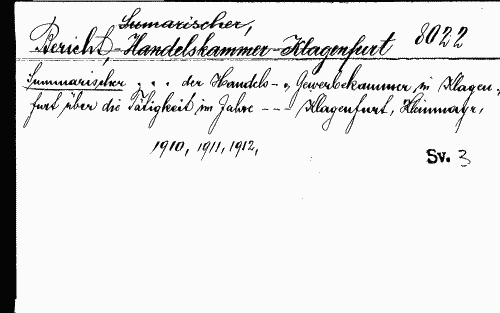 Sumarischer,
Bericht, - Handelskammer - Klagenfurt 8022
Summarischer . . . der Handels - u. Gewerbekammer in Klagen-
furt über die Tätigkeit im Jahre - - - Klagenfurt, Kleinmayr,
1910, 1911, 1912,
Sv. 3